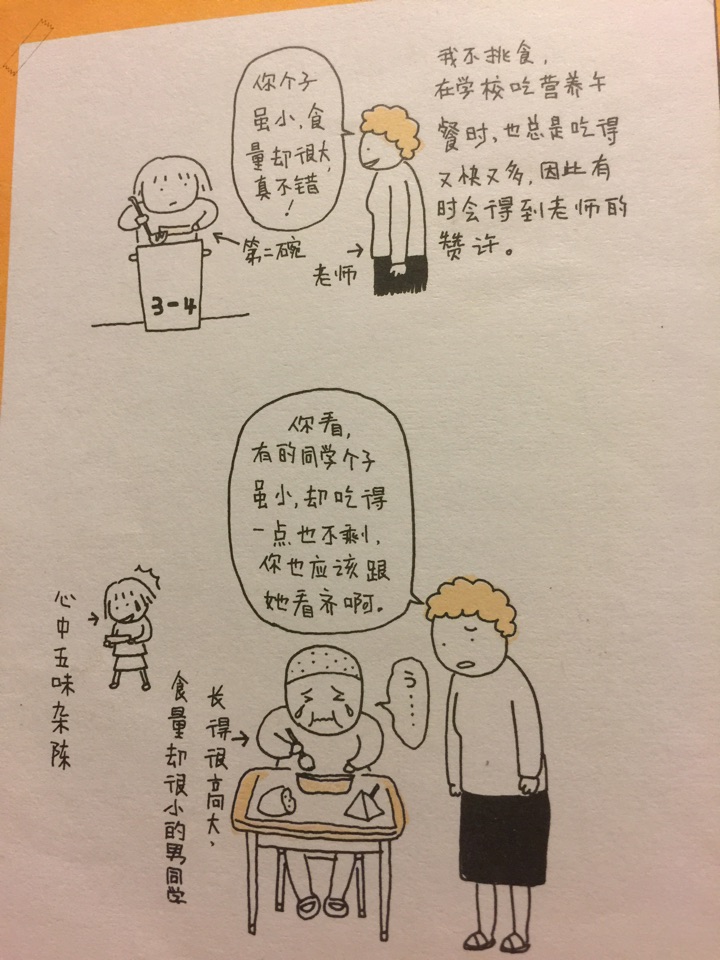 我不挑食，
在学校吃营养午
餐时，也总是吃得
又快又多，因此有
时会得到老师的
赞许。
你个子
虽小，食
量却很大，
真不错
！
第二碗
老师
3-4
你看，
有的同学个子
虽小，却吃得
一点也不剩，
你也应该跟
她看齐啊。
う…
心中五味杂陈
长得很高大，
食量却很小的男同学